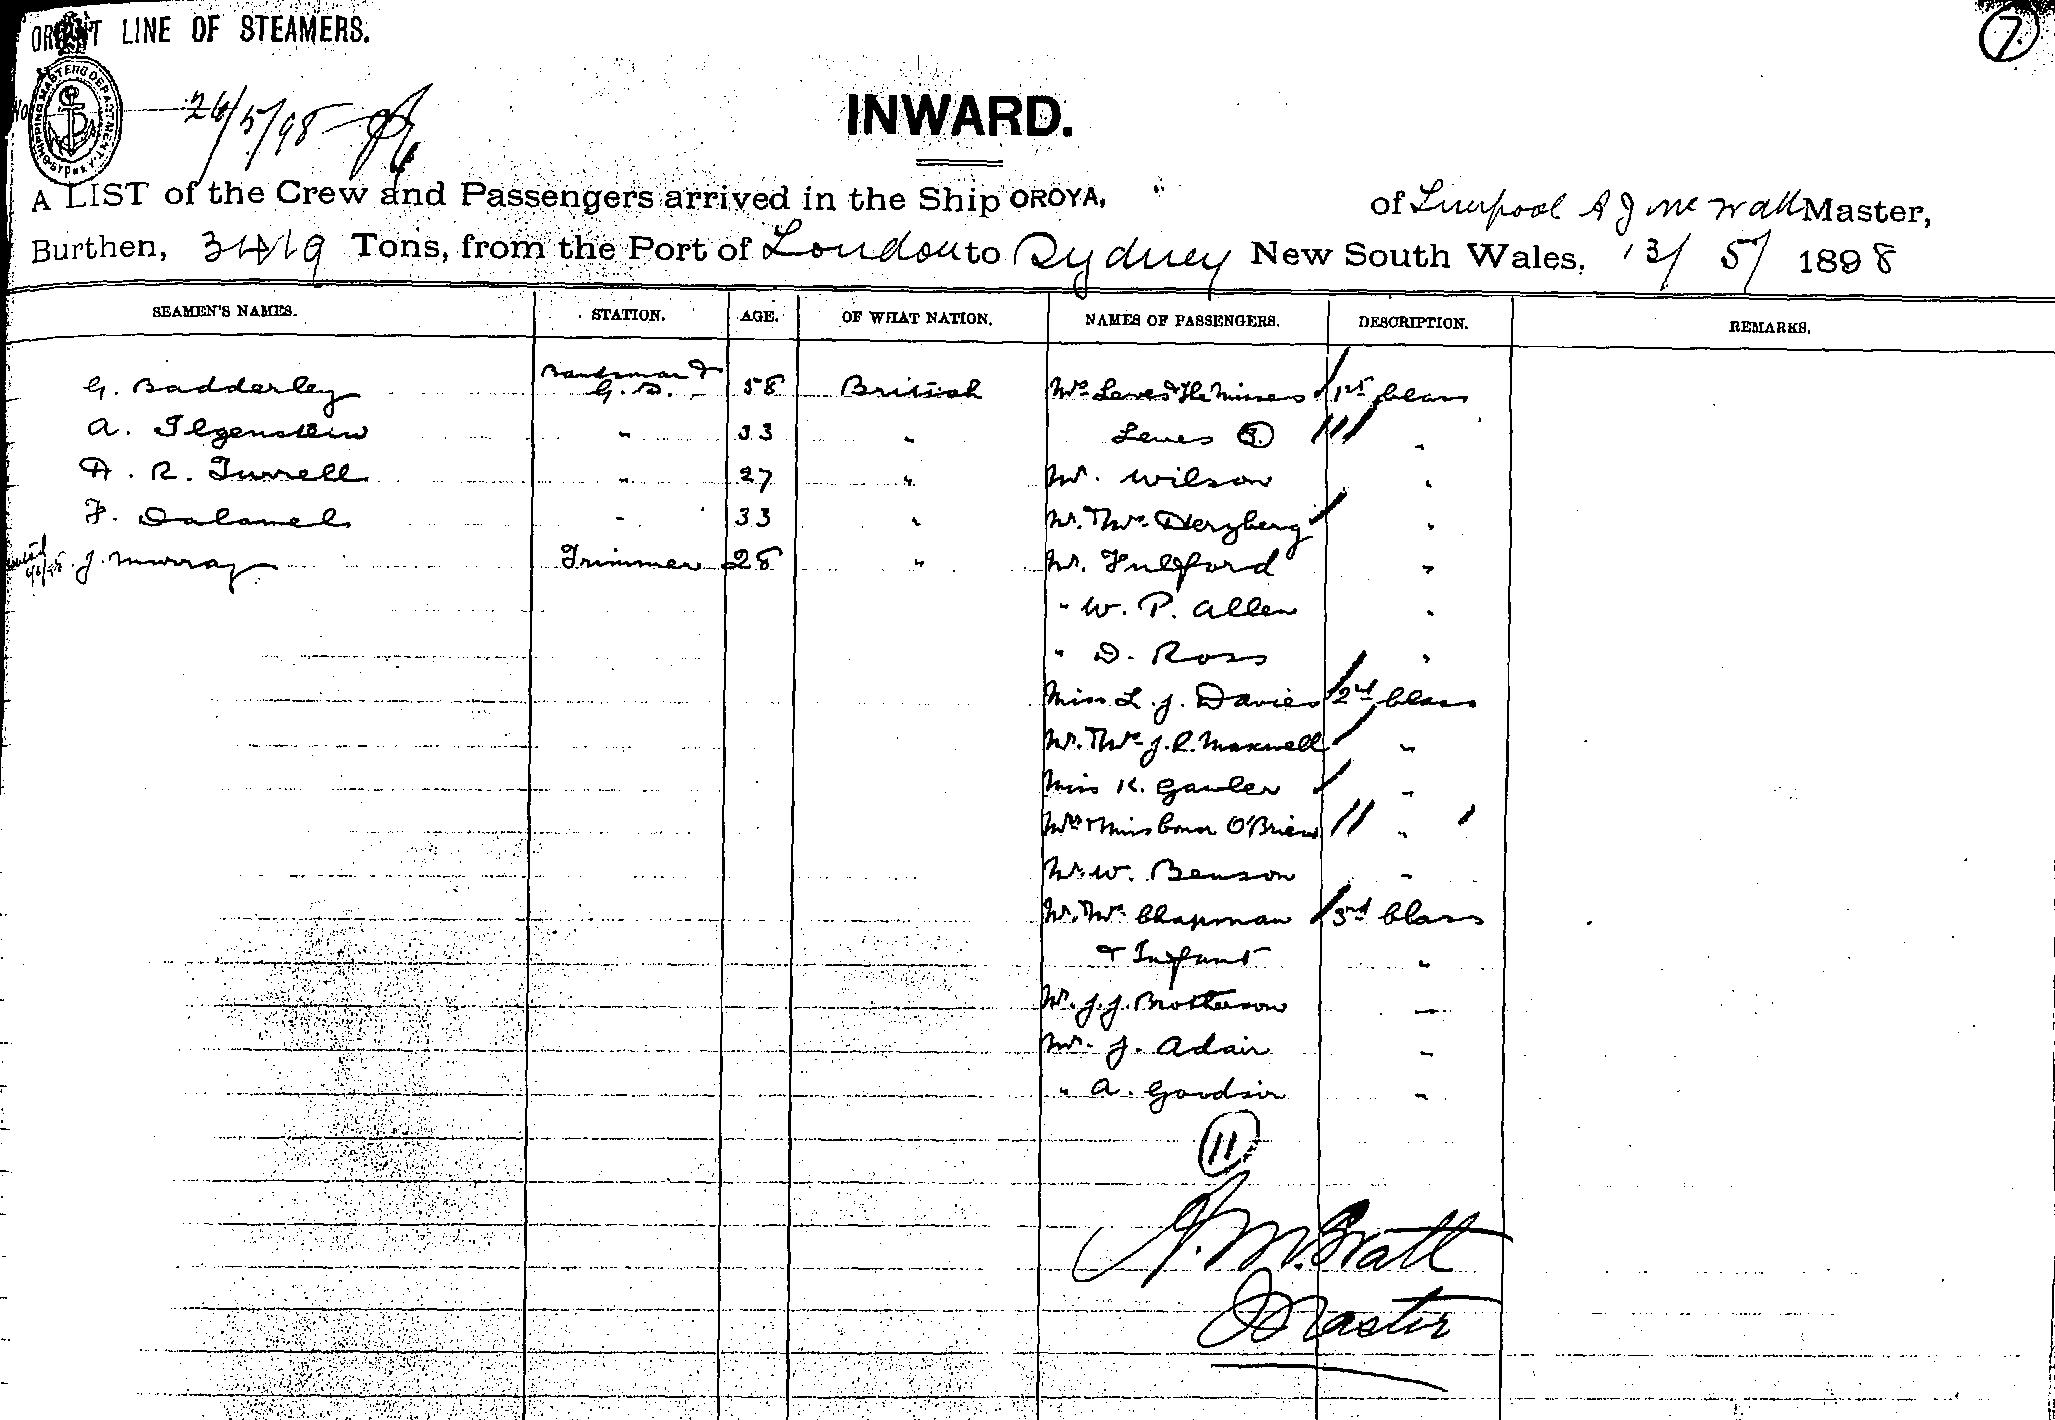 ORIENT LINE OF STEAMERS.
7
SHIPPING MASTERS DEPARTMENT
26/5/98
INWARD.
A LIST of the Crew and Passengers arrived in the Ship OROYA, " of Liverpool Master,
Burthen, 3419 Tons, from the Port of London to Sydney New South Wales, 13/5/1898
SEAMEN'S NAMES. STATION. AGE. OF WHAT NATION. NAMES OF PASSENGERS. DESCRIPTION. REMARKS.
G. Badderley Bandsman & G.S. 58 British Mrs Leves & the Misses 1st Class
A. Ilgenstein " 33 " Leves 3 "
R. Turrell " 27 " Mr. Wilson "
F. " 33 " Mr. & Mrs Herzberg "
J. Murray Trimmer 28 " Mr. Fulford "
" W. P. Allen "
" D. Ross "
Miss L. J. Davies 2nd Class
Mr. & Mrs J. R. Maxwell "
Miss K. Gauler "
Mrs & Miss O'Brien "
Mr W. Benson "
Mr. & Mrs Chapman 3rd Class
& Infant "
Mr. J. J. Brotherson "
Mr. J. Adair "
" A. Goodsir "
11
Master